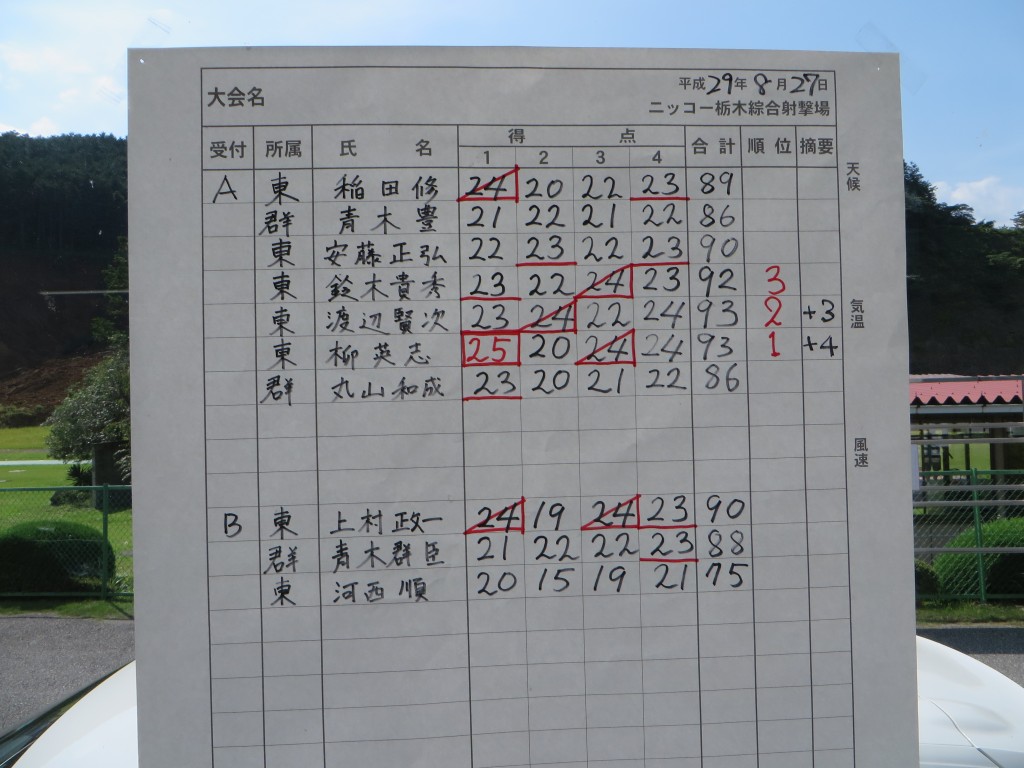 平成29年8月27日
大会名
ニッコー栃木綜合射撃場
受付 所属 氏名 得点 合計 順位 摘要
1 2 3 4
天候
A 東 稲田修 24 20 22 23 89
群 青木豊 21 22 21 22 86
東 安藤正弘 22 23 22 23 90
東 鈴木貴秀 23 22 24 23 92 3
気温
東 渡辺賢次 23 24 22 24 93 2 +3
東 柳英志 25 20 24 24 93 1 +4
群 丸山和成 23 20 21 22 86
風速
B 東 上村政一 24 19 24 23 90
群 青木群臣 21 22 22 23 88
東 河西順 20 15 19 21 75